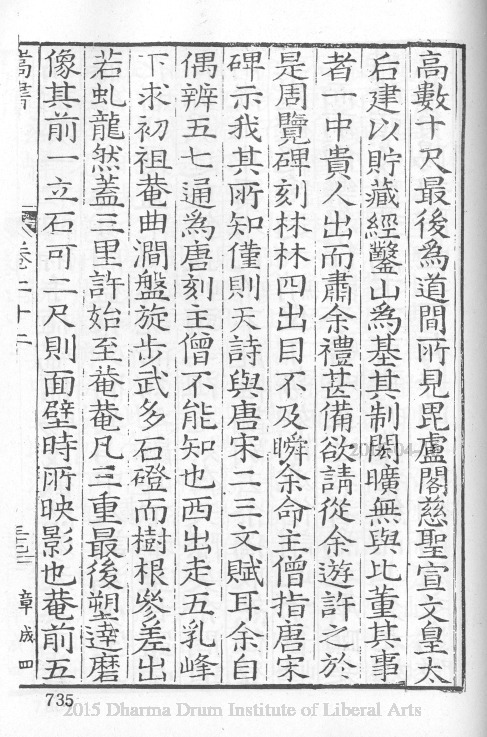 高數十尺最後爲道間所見毘盧閣慈聖宣文皇太
后建以貯藏經鑿山爲基其制閎曠無與比董其事
者一中貴人出而肅余禮甚備欲請從余遊許之於
是周覽碑刻林林四出目不及瞬余命主僧指唐宋
碑示我其所知僅則天詩與唐宋二三文賦耳余自
偶辨五七通爲唐刻主僧不能知也西出走五乳峰
下求初祖菴曲澗盤旋步武多石磴而樹根參差出
若虬龍然蓋三里許始至菴菴凡三重最後塑達磨
像其前一立石可二尺則面壁時所映影也菴前五
嵩書 卷二十二 章成四
735
2015 Dharma Drum Institute of Liberal Arts